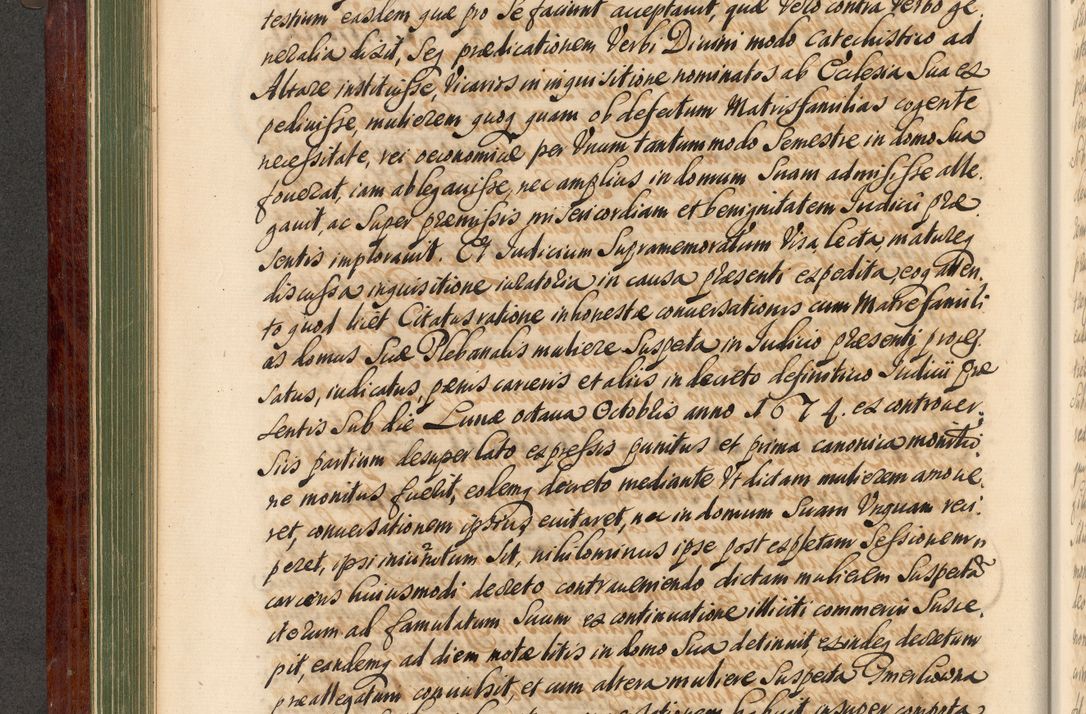 testium easdem, quæ pro se faciunt acceptavit, quæ vero contra verbo ge,
neralia dixit, seq prædicationem Verbi Divini modo Catechistico ad
Altare instituisse, Vicarios in inquisitione nominatos ab Ecclesia Sua ex
pedivisse, mulierem quoq quam ob defectum Matrisfamilias cogente
necessitate, rei oeconomicæ per Unum tantummodo Semestre in domo Sua
foverat, iam ablegavisse, nec amplius in domum Suam admisisse alle,
gavit, ac Super præmissis misericordiam et benignitatem Iudicii præ
sentis imploravit. Et Iudicium Supramemoratum Visa, lecta, matureq
discussa inquisitione iuratoria in causa præsenti expedita, eoq atten,
to quod licet Citatus ratione inhonestæ conversationis cum Matrefamili
as domus Suæ Plebanalis muliere Suspecta in Iudicio præsenti proces
satus, iudicatus, pænis carceris et aliis in decreto definitivo Iudicii præ
sentis Sub die Lunæ octava Octobris anno 1674. ex controver,
siis partium desuper lato expressis punitus et prima canonica moniti,
ne monitus fuerit, eodemq decreto mediante Ut dictam mulierem amove,
ret, conversationem ipsius evitaret, nec in domum Suam Unquam reci,
peret, ipsi iniunctum sit, nihilominus ipse post expletam Sessionem
carceris huiusmodi decreto contraveniendo dictam mulierem Suspectã
iterum ad famulatum Suum ex continuatione illiciti commercii Susce,
pit, eandemq ad diem motæ litis in domo Sua detinuit, exindeq decretum
præallegatum convulsit, et cum altera muliere Suspecta
habuit insuper